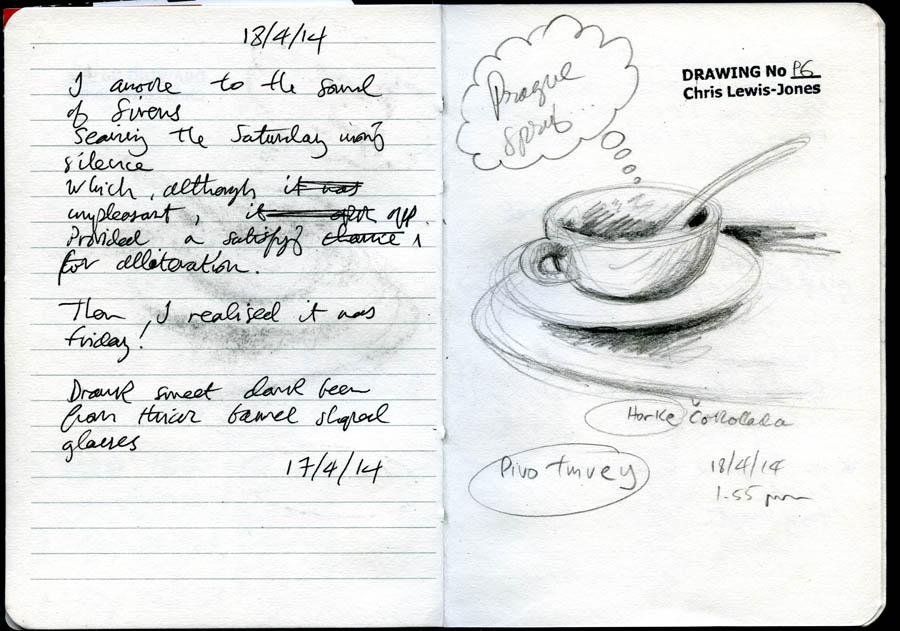 18/4/14
I awoke to the sound
of Sirens
Searing the Saturday morng
silence
Which, although it was
unpleasant, it opp.
Provided a satisfyg chance
for alliteration.
Then, I realised it was
Friday!
Drank sweet dark beer
from thick barrel shaped
glasses
17/4/14
Prague
Spring...
DRAWING No P6
Chris Lewis-Jones
Horke Čokolada
Pivo tmvey
18/4/14
1.55 pm